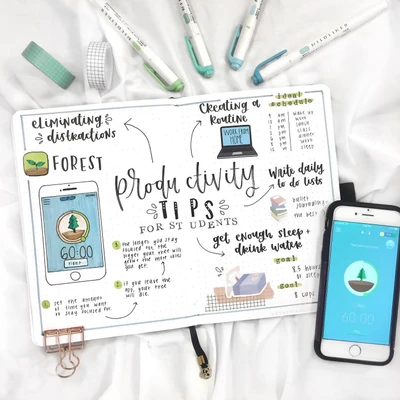 eliminating
distractions
FOREST
60:00
1. set the amount
of time you want
to stay focused for.
2. if you leave the
app, your tree
will die.
3. the longer you stay
focused for, the
bigger your tree will
grow + the more coins
you get.
productivity
TIPS
FOR STUDENTS
Creating a
Routine
WORK FROM
HOME
ideal
schedule
Write daily
to do lists
bullet
journaling
the best
get enough sleep +
drink water
goal
8.5 hours
of sleep
goal
8 cups
MILDLINER
60:00